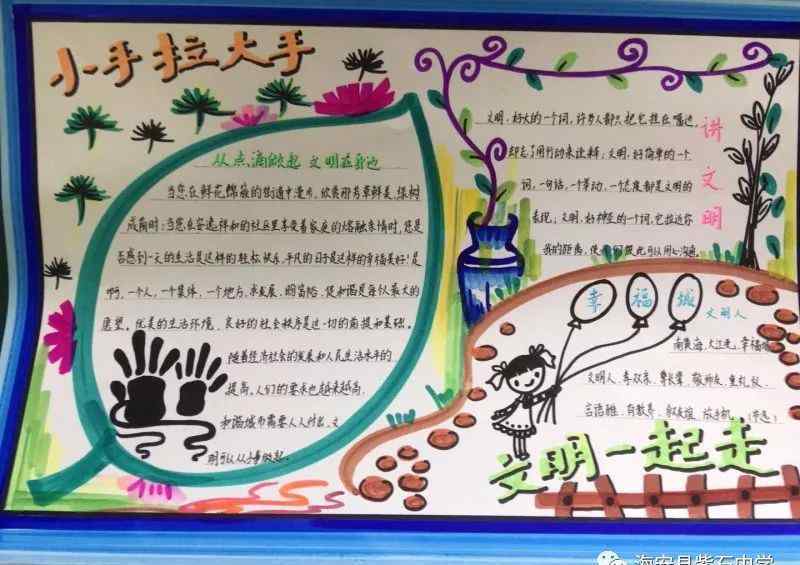 小手拉大手
从点滴做起 文明在身边
当您在鲜花锦簇的街道中漫步，欣赏那芳草鲜美，绿树
成荫时；当您在安逸祥和的社区里享受着家庭的融融亲情时，您是
否感到一天的生活是这样的轻松、快乐，平凡的日子是这样的幸福美好！是
啊，一个人，一个集体，一个地方，求发展、盼富裕、促和谐是每个最大的
愿望，优美的生活环境、良好的社会秩序是这一切的前提和基础。
随着经济社会的发展和人民生活水平的
提高，人们的要求也越来越高，
和谐城市需要人人付出，文
明可以从小事做起。
文明，好大的一个词，许多人都只把它挂在嘴边，
却忘了用行动来诠释；文明，好简单的一个
词，一句话，一个举动，一个态度都是文明的
表现；文明，好神圣的一个词，它拉近你
我的距离，使人们彼此可以用心沟通
讲文明
幸福城
文明人
南黄海，大江走，幸福城
文明人，孝双亲，
敬师友，重礼仪，
言语雅，有教养，
文明一起走
海安县紫石中学